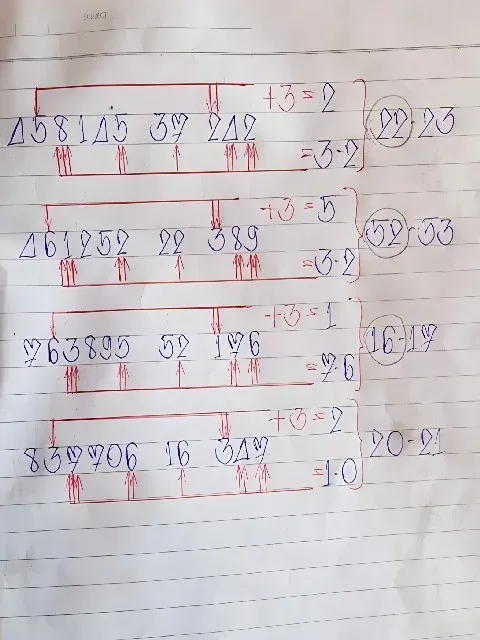 SUBJECT
+3=2
458145 37 242 22-23
=3-2
+3=5
461252 22 389 52-53
=3-2
+3=1
763895 52 176 16-17
=7-6
+3=2
837706 16 347 20-21
=1-0